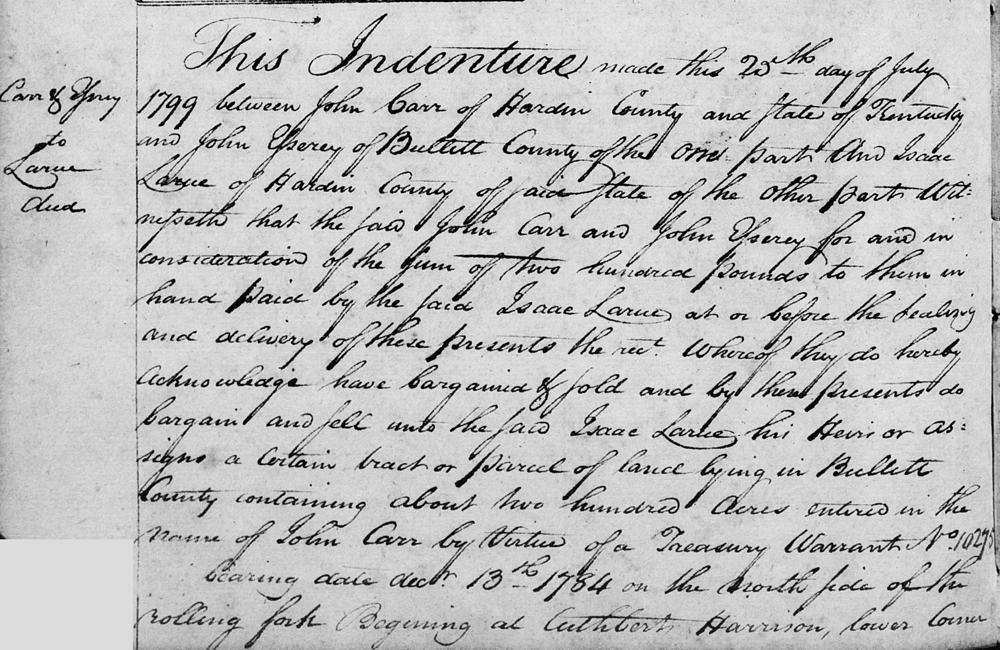 This Indenture made this 20th day of July
Carr & Essrey
to
Larue
deed
1799 between John Carr of Hardin County and State of Kentucky
and John Esserey of Bullett County of the one part And Isaac
Larue of Hardin County of said State of the other part Wit=
nesseth that the said John Carr and John Esserey for and in
consideration of the sum of two hundred pounds to them in
hand paid by the said Isaac Larue at or before the sealing
and delivery of these presents the rect. Whereof they do hereby
acknowledge have bargained & sold and by these presents do
bargain and sell unto the said Isaac Larue his Heirs or as=
signs a Certain tract or parcel of land lying in Bullett
County containing about two hundred Acres entered in the
name of John Carr by Virtue of a Treasury Warrant No.
bearing date decr 13th 1784 on the north side of the
rolling fork Begining at Cuthbert Harrison, lower Corner